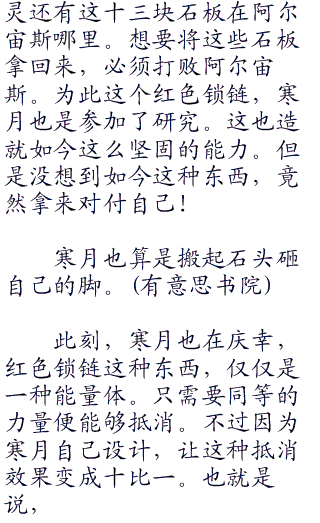 灵还有这十三块石板在阿尔
宙斯哪里。想要将这些石板
拿回来，必须打败阿尔宙
斯。为此这个红色锁链，寒
月也是参加了研究。这也造
就如今这么坚固的能力。但
是没想到如今这种东西，竟
然拿来对付自己！
寒月也算是搬起石头砸
自己的脚。(有意思书院)
此刻，寒月也在庆幸，
红色锁链这种东西，仅仅是
一种能量体。只需要同等的
力量便能够抵消。不过因为
寒月自己设计，让这种抵消
效果变成十比一。也就是
说，